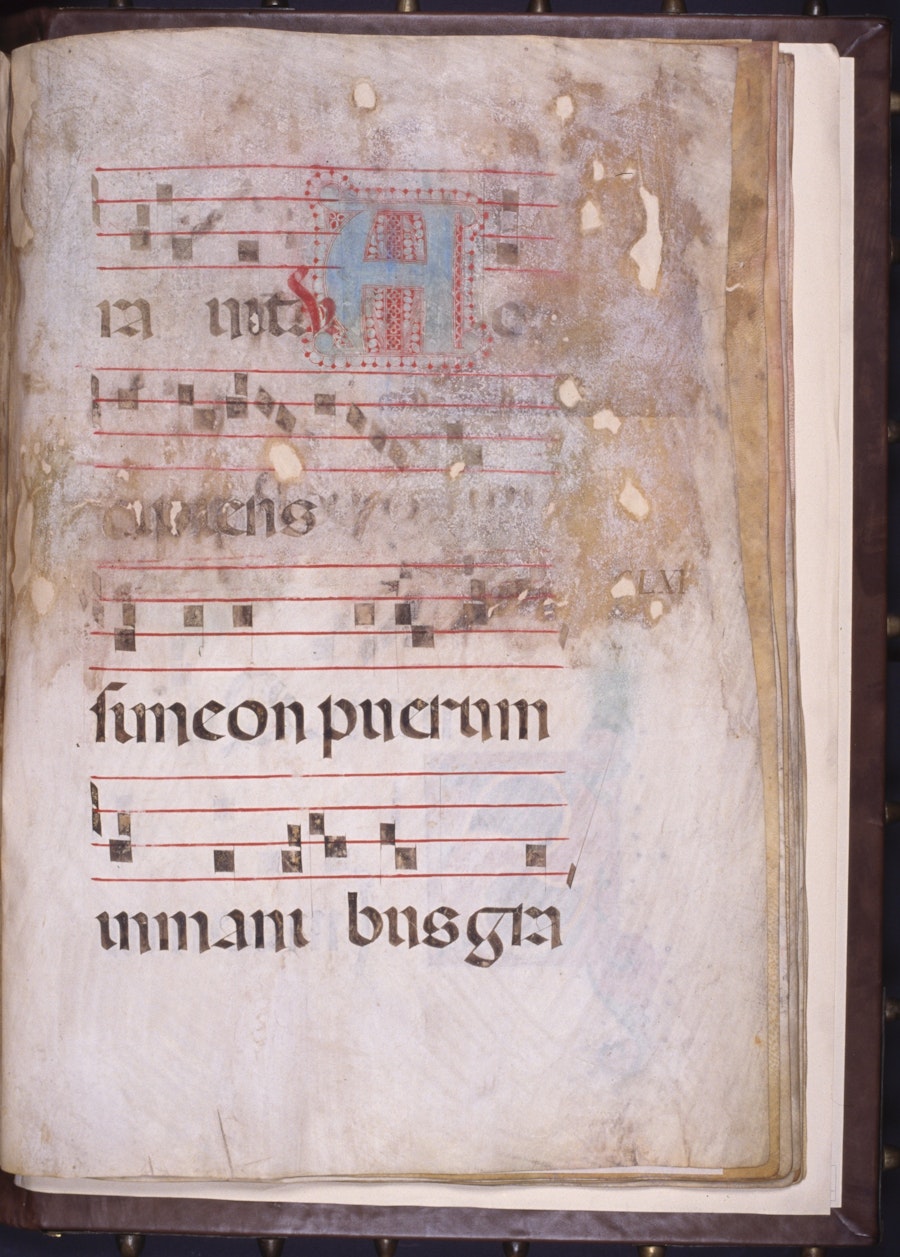 ra A c
cipiens
CLXI
ſimeon puerum
inmani bus gra